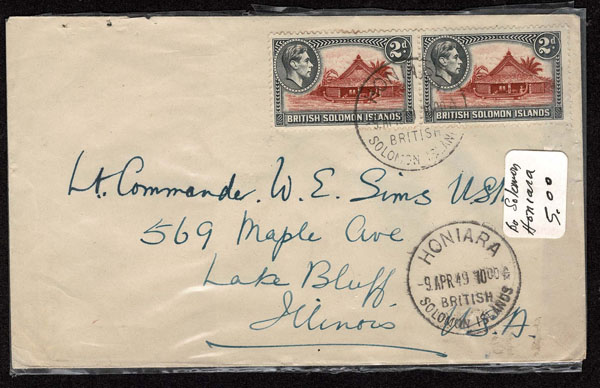 2d 2d
BRITISH SOLOMON ISLANDS BRITISH SOLOMON ISLANDS
HONIARA
BRITISH
SOLOMON ISLANDS
Lt. Commander. W. E. Sims USN
569 Maple Ave
Lake Bluff
Illinois
U.S.A.
HONIARA
-9 APR 49
BRITISH
SOLOMON ISLANDS
Solomon
Honiara
5.00